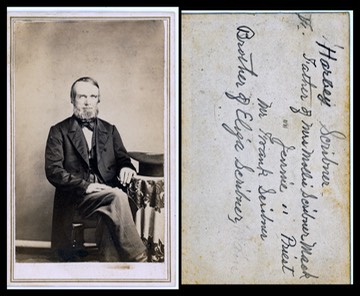 Harvey Scribner
Father of Mrs Mollie Scribner Mack
" Jennie " Priest
Mr Frank Scribner
Brother of Elija Scribner